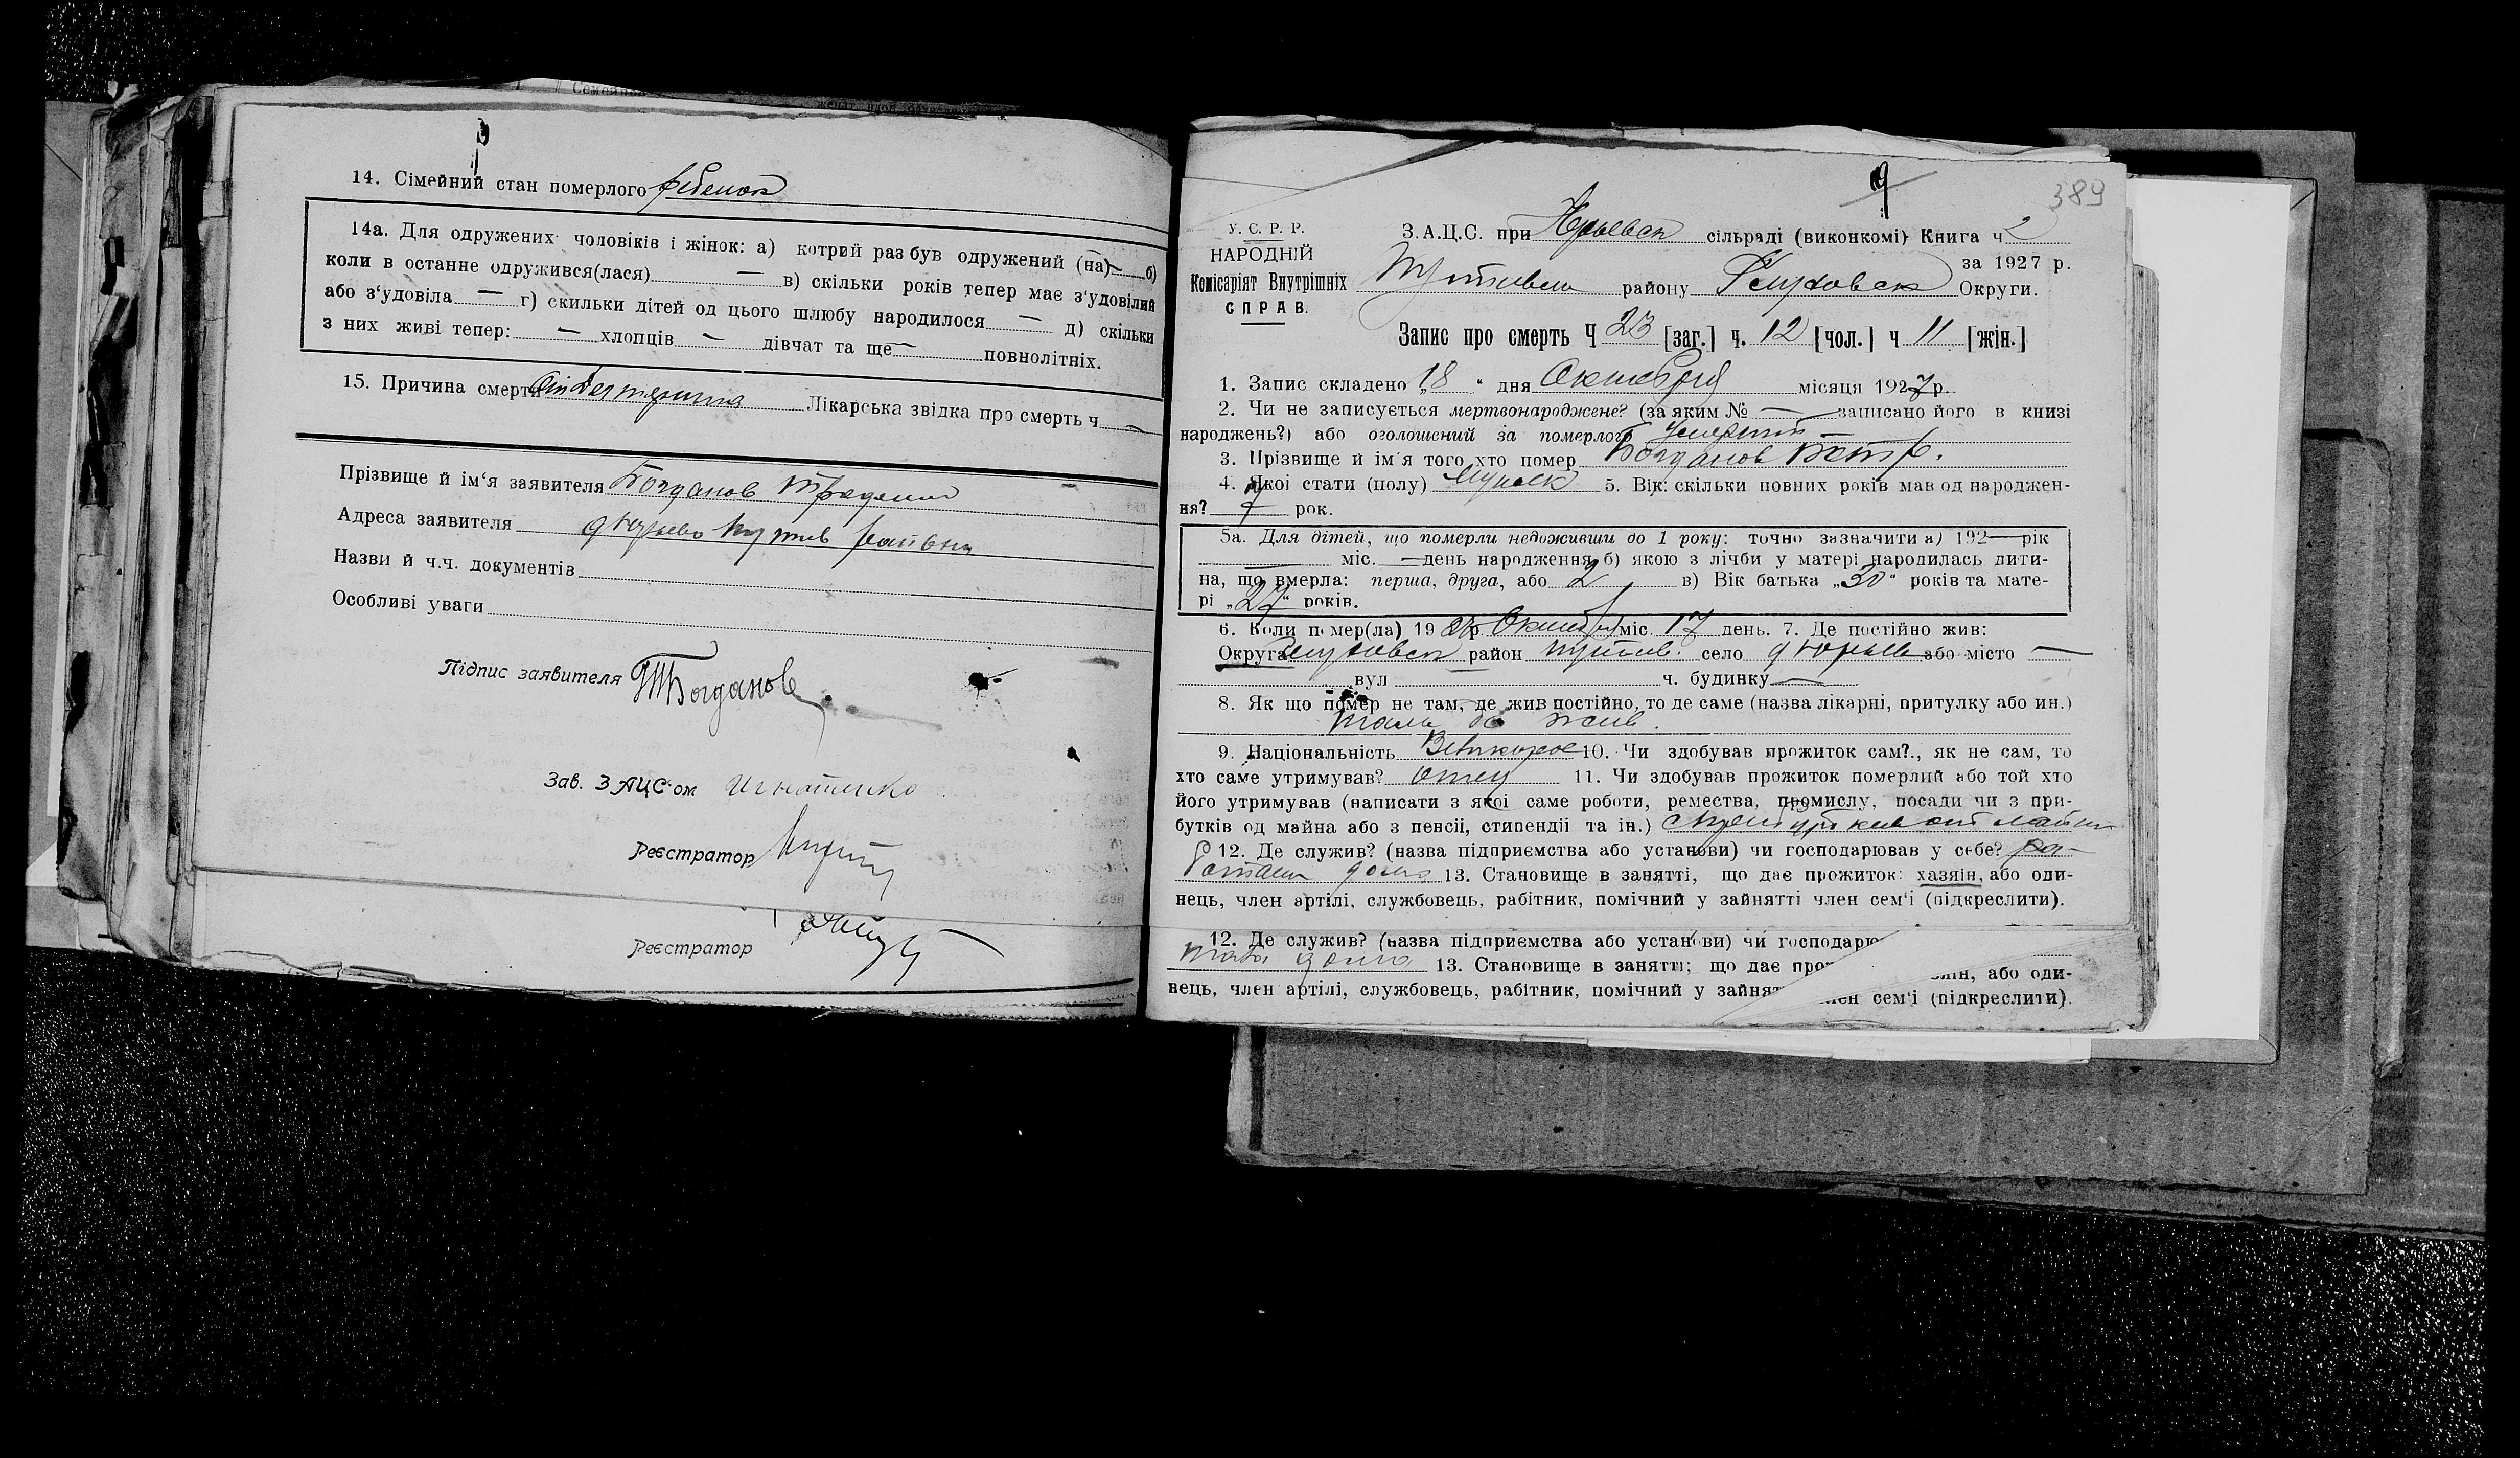 14. Сімейний стан померлого ребенок
14а. Для одружених чоловіків і жінок: а) котрий раз був одружений (на) — б)
коли в останне одружився(лася) — в) скільки років тепер має з'удовілий
або з'удовіла — г) скильки дітей од цього шлюбу народилося — д) скільки
з них живі тепер: — хлопців — дівчат та ще — повнолітніх.
15. Причина смерти Лікарська звідка про смерть ч. —
Прізвище й ім'я заявителя Богданов
Адреса заявителя
Назви й ч.ч. документів
Особливі уваги
Підпис заявителя Богданов
Зав. ЗАЦС'ом Игнатенко
Реєстратор
Реєстратор
389
У. С. Р. Р.
НАРОДНІЙ
Комісаріят Внутрішніх
СПРАВ.
З.А.Ц.С. при сільраді (виконкомі) Книга ч 2
за 1927 р.
Путивльск району Глуховск Округи.
Запис про смерть Ч 23 [заг.] ч. 12 [чол.] ч 11 [жін.]
1. Запис складено „18 " дня Октября місяця 1927 р.
2. Чи не записується мертвонароджене? (за яким № — записано його в книзі
народжень?) або оголошений за померлого умерший —
3. Прізвище й ім'я того хто помер Богданов Петр.
4. Якої стати (полу) Мужск 5. Вік: скільки повних років мав од народжен-
ня? 7 рок.
5а. Для дітей, що померли недоживши до 1 року: точно зазначити а) 192— рік
міс. — день народження б) якою з лічби у матері народилась дити-
на, що вмерла: перша, друга, або 2 в) Вік батька „30" років та мате-
рі „27" років.
6. Коли помер(ла) 1927 р. Октября міс. 17 день. 7. Де постійно жив:
Округа Глуховск район Путивл. село або місто —
вул ч. будинку —
8. Як що помер не там, де жив постійно, то де саме (назва лікарні, притулку або ин.)
там де жив.
9. Національність Великорос 10. Чи здобував прожиток сам?., як не сам, то
хто саме утримував? отец 11. Чи здобував прожиток померлий або той хто
його утримував (написати з якої саме роботи, ремества, промислу, посади чи з при-
бутків од майна або з пенсії, стипендії та ін.)
12. Де служив? (назва підприємства або установи) чи господарював у себе? ра-
ботал дома 13. Становище в занятті, що дає прожиток: хазяін, або оди-
нець, член артілі, службовець, рабітник, помічний у зайнятті член сем'ї (підкреслити).
12. Де служив? (назва підприємства або установи) чи господарю
дома 13. Становище в занятті; що дає про зяін, або оди-
нець, член артілі, службовець, рабітник, помічний у зайнят член сем'ї (підкреслити).